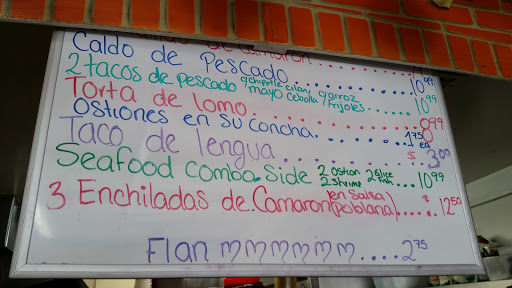 de Camaron
Caldo de Pescado 10⁹⁹
2 tacos de pescado chipotle cilan, mayo cebolla y arroz frijoles 10⁹⁹
Torta de lomo 99
Ostiones en su concha 1⁷⁵ ea
Taco de lengua $3.00
Seafood Combo Side 2 ostion 2 shrimp 2 slice fish 10⁹⁹
3 Enchiladas de Camaron (en salsa poblana) $12⁵⁰
Flan mmmmmm 2⁷⁵